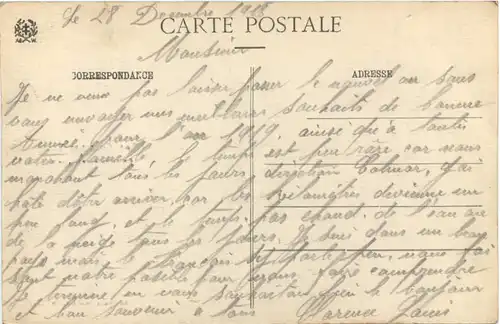 Le 28 Decembre 1918
CARTE POSTALE
Monsieur
CORRESPONDANCE
ADRESSE
Je ne veux pas laisser passer le nouvel an sans
vous envoyer mes meilleurs souhaits de bonne
Année pour l'an 1919, ainsi que à toute
votre famille le temps est peu rare car nous
marchant tous les jours direction Colmar, j'ai
hâte d'être arriver, car les kilomètres devienne un
peu et le temps pas chaud, de l'eau ou
de la neige tous les jours. Je suis dans un beau
pays mais le Français
sont notre pour nous faire comprendre
Je termine en vous souhaitant bien le bonjour
et bon souvenir a tous Clarence